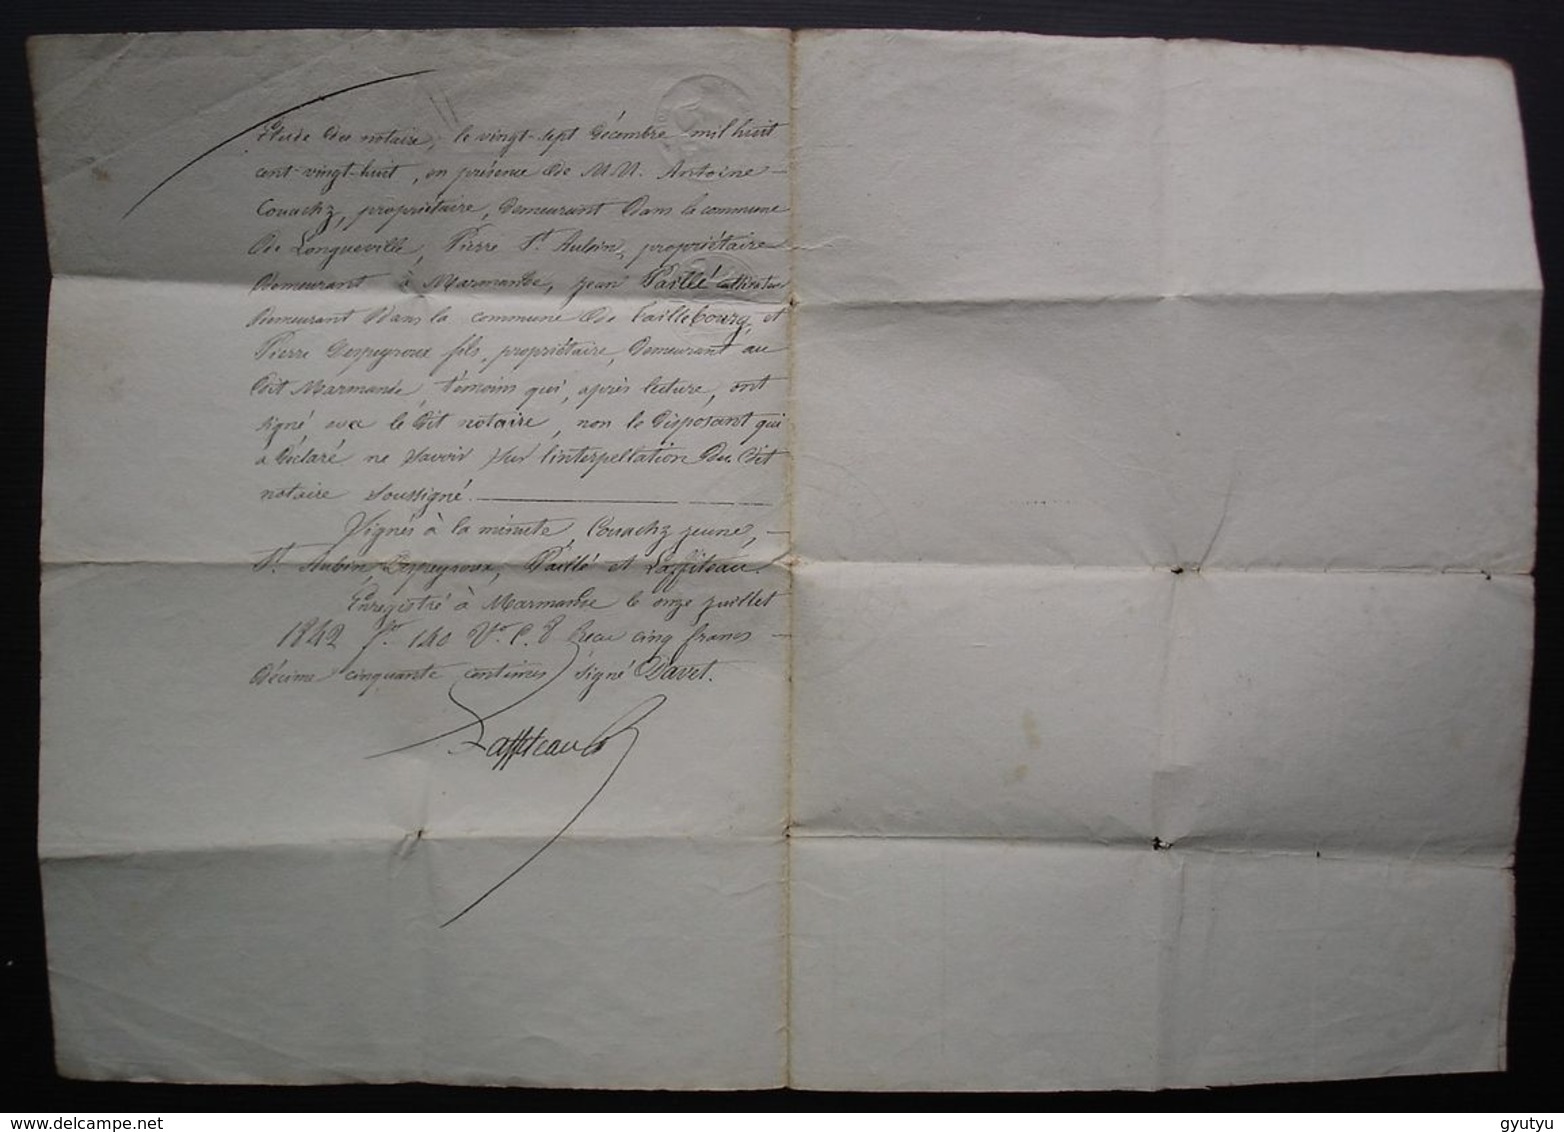 Etude du notaire, le vingt-sept Décembre mil huit
cent-vingt-huit, en présence de MM. Antoine
Couachz, propriétaire, demeurant dans la commune
de Longueville, Pierre St Aubin, propriétaire
demeurant à Marmande, jean Paillé cultivateur
demeurant dans la commune de Taillebourg, et
Pierre Despeyroux fils, propriétaire, demeurant au
dit Marmande, témoins qui, après lecture, ont
signé avec le dit notaire, non le disposant qui
a déclaré ne savoir sur l'interpellation du dit
notaire soussigné.
Signés à la minute, Couachz jeune,
St. Aubin, Despeyroux, Paillé et Laffiteau.
Enregistré à Marmande le onze juillet
1842 fo. 140 Vo. C. 8 Reçu cinq francs
décime cinquante centimes signé Davet.
Laffiteau
delcampe.net
gyutyu